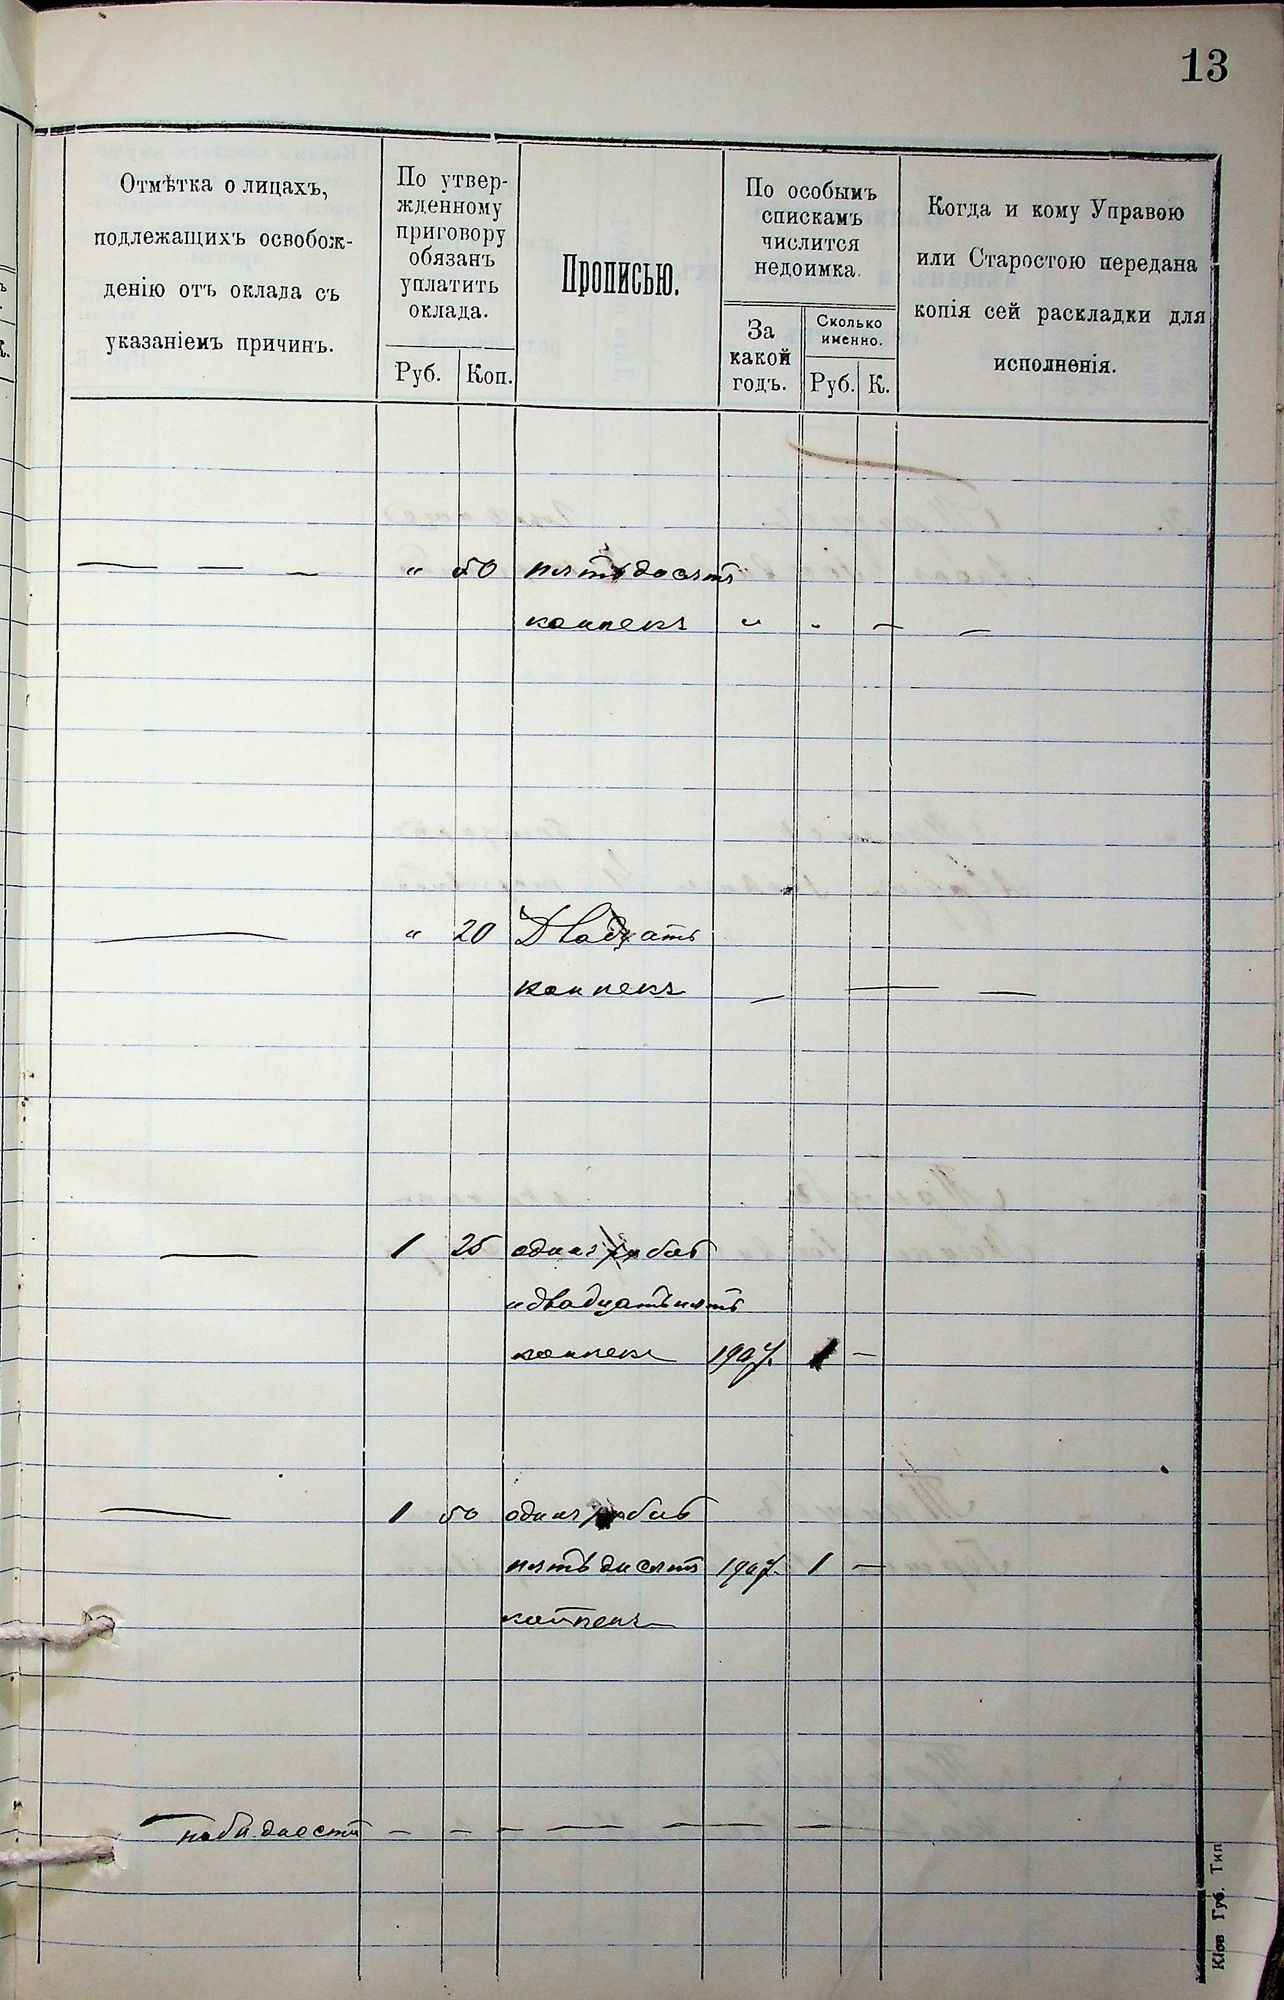 13
Отмѣтка о лицахъ,
подлежащихъ освобож-
денію отъ оклада съ
указаніемъ причинъ.
По утвер-
жденному
приговору
обязанъ
уплатить
оклада.
Руб. Коп.
Прописью.
По особымъ
спискамъ
числится
недоимка.
За
какой
годъ.
Сколько
именно.
Руб. К.
Когда и кому Управою
или Старостою передана
копія сей раскладки для
исполненія.
— — — " 50 пятьдесятъ
копѣекъ " " — —
— " 20 Двадцать
копѣекъ — — —
— 1 25 одинъ рубль
и двадцать пять
копѣекъ 1907. 1 —
— 1 50 одинъ рубль
пятьдесятъ 1907. 1 —
копѣекъ
по бѣдности — — — — — — —
Кіев Губ. Тип